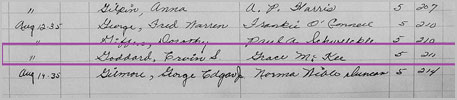 " Gilpin, Anna A. P. Harris 5 207
Aug 12-35 George, Fred Warren Frankie O'Connell 5 210
" Giffos, Dorothy Paul A. 5 210
" Goddard, Ervin S. Grace McKee 5 211
Aug 14-35 Gilmore, George Edgar Jr Norma 5 214